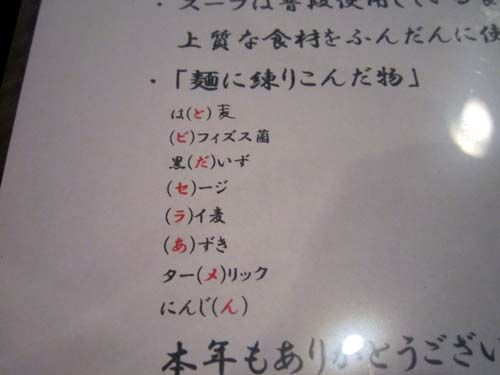 ・スープは普段使用している
上質な食材をふんだんに使
・「麺に練りこんだ物」
は(と)麦
(ビ)フィズス菌
黒(だ)いず
(セ)ージ
(ラ)イ麦
(あ)ずき
ター(メ)リック
にんじ(ん)
本年もありがとうござい